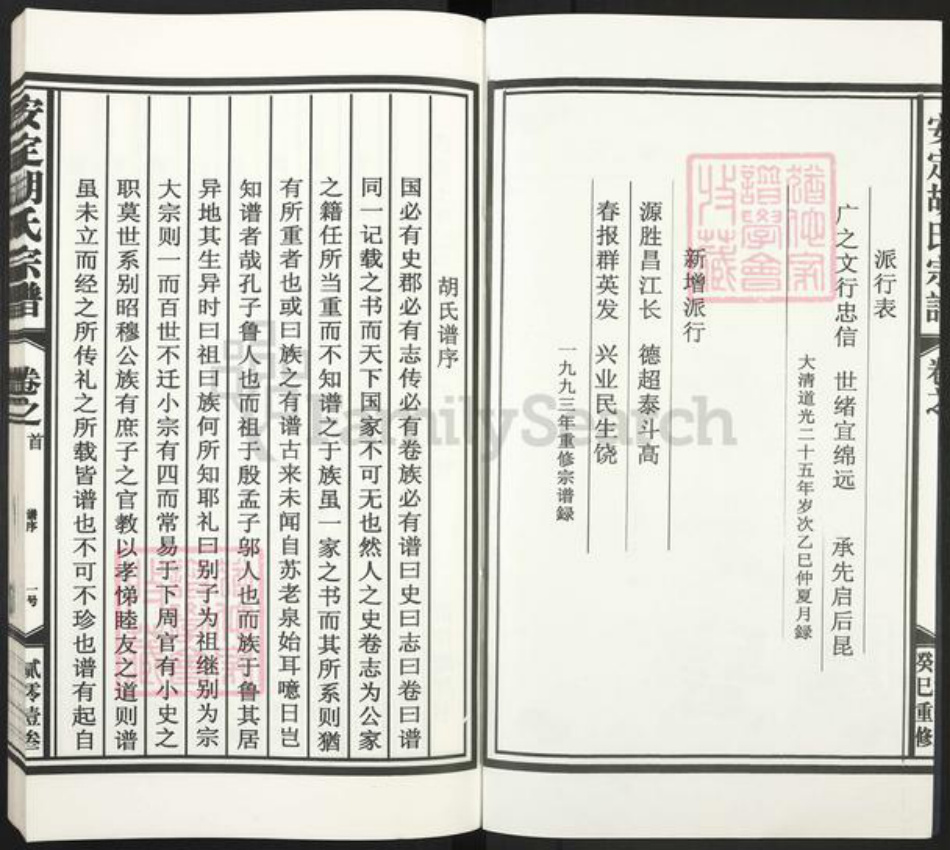 安定胡氏宗谱
卷之
癸巳重修
派行表
广之文行忠信 世绪宜绵远 承先启后昆
大清道光二十五年岁次乙巳仲夏月録
新增派行
源胜昌江长 德超泰斗高
春报群英发 兴业民生饶
一九九三年重修宗谱録
胡氏谱序
国必有史郡必有志传必有卷族必有谱曰史曰志曰卷曰谱
同一记载之书而天下国家不可无也然人之史卷志为公家
之籍任所当重而不知谱之于族虽一家之书而其所系则犹
有所重者也或曰族之有谱古来未闻自苏老泉始耳噫日岂
知谱者哉孔子鲁人也而祖于殷孟子邬人也而族于鲁其居
异地其生异时曰祖曰族何所知耶礼曰别子为祖继别为宗
大宗则一而百世不迁小宗有四而常易于下周官有小史之
职莫世系别昭穆公族有庶子之官教以孝悌睦友之道则谱
虽未立而经之所传礼之所载皆谱也不可不珍也谱有起自
安定胡氏宗谱
卷之
首
谱序
一号
贰零壹叁
FamilySearch